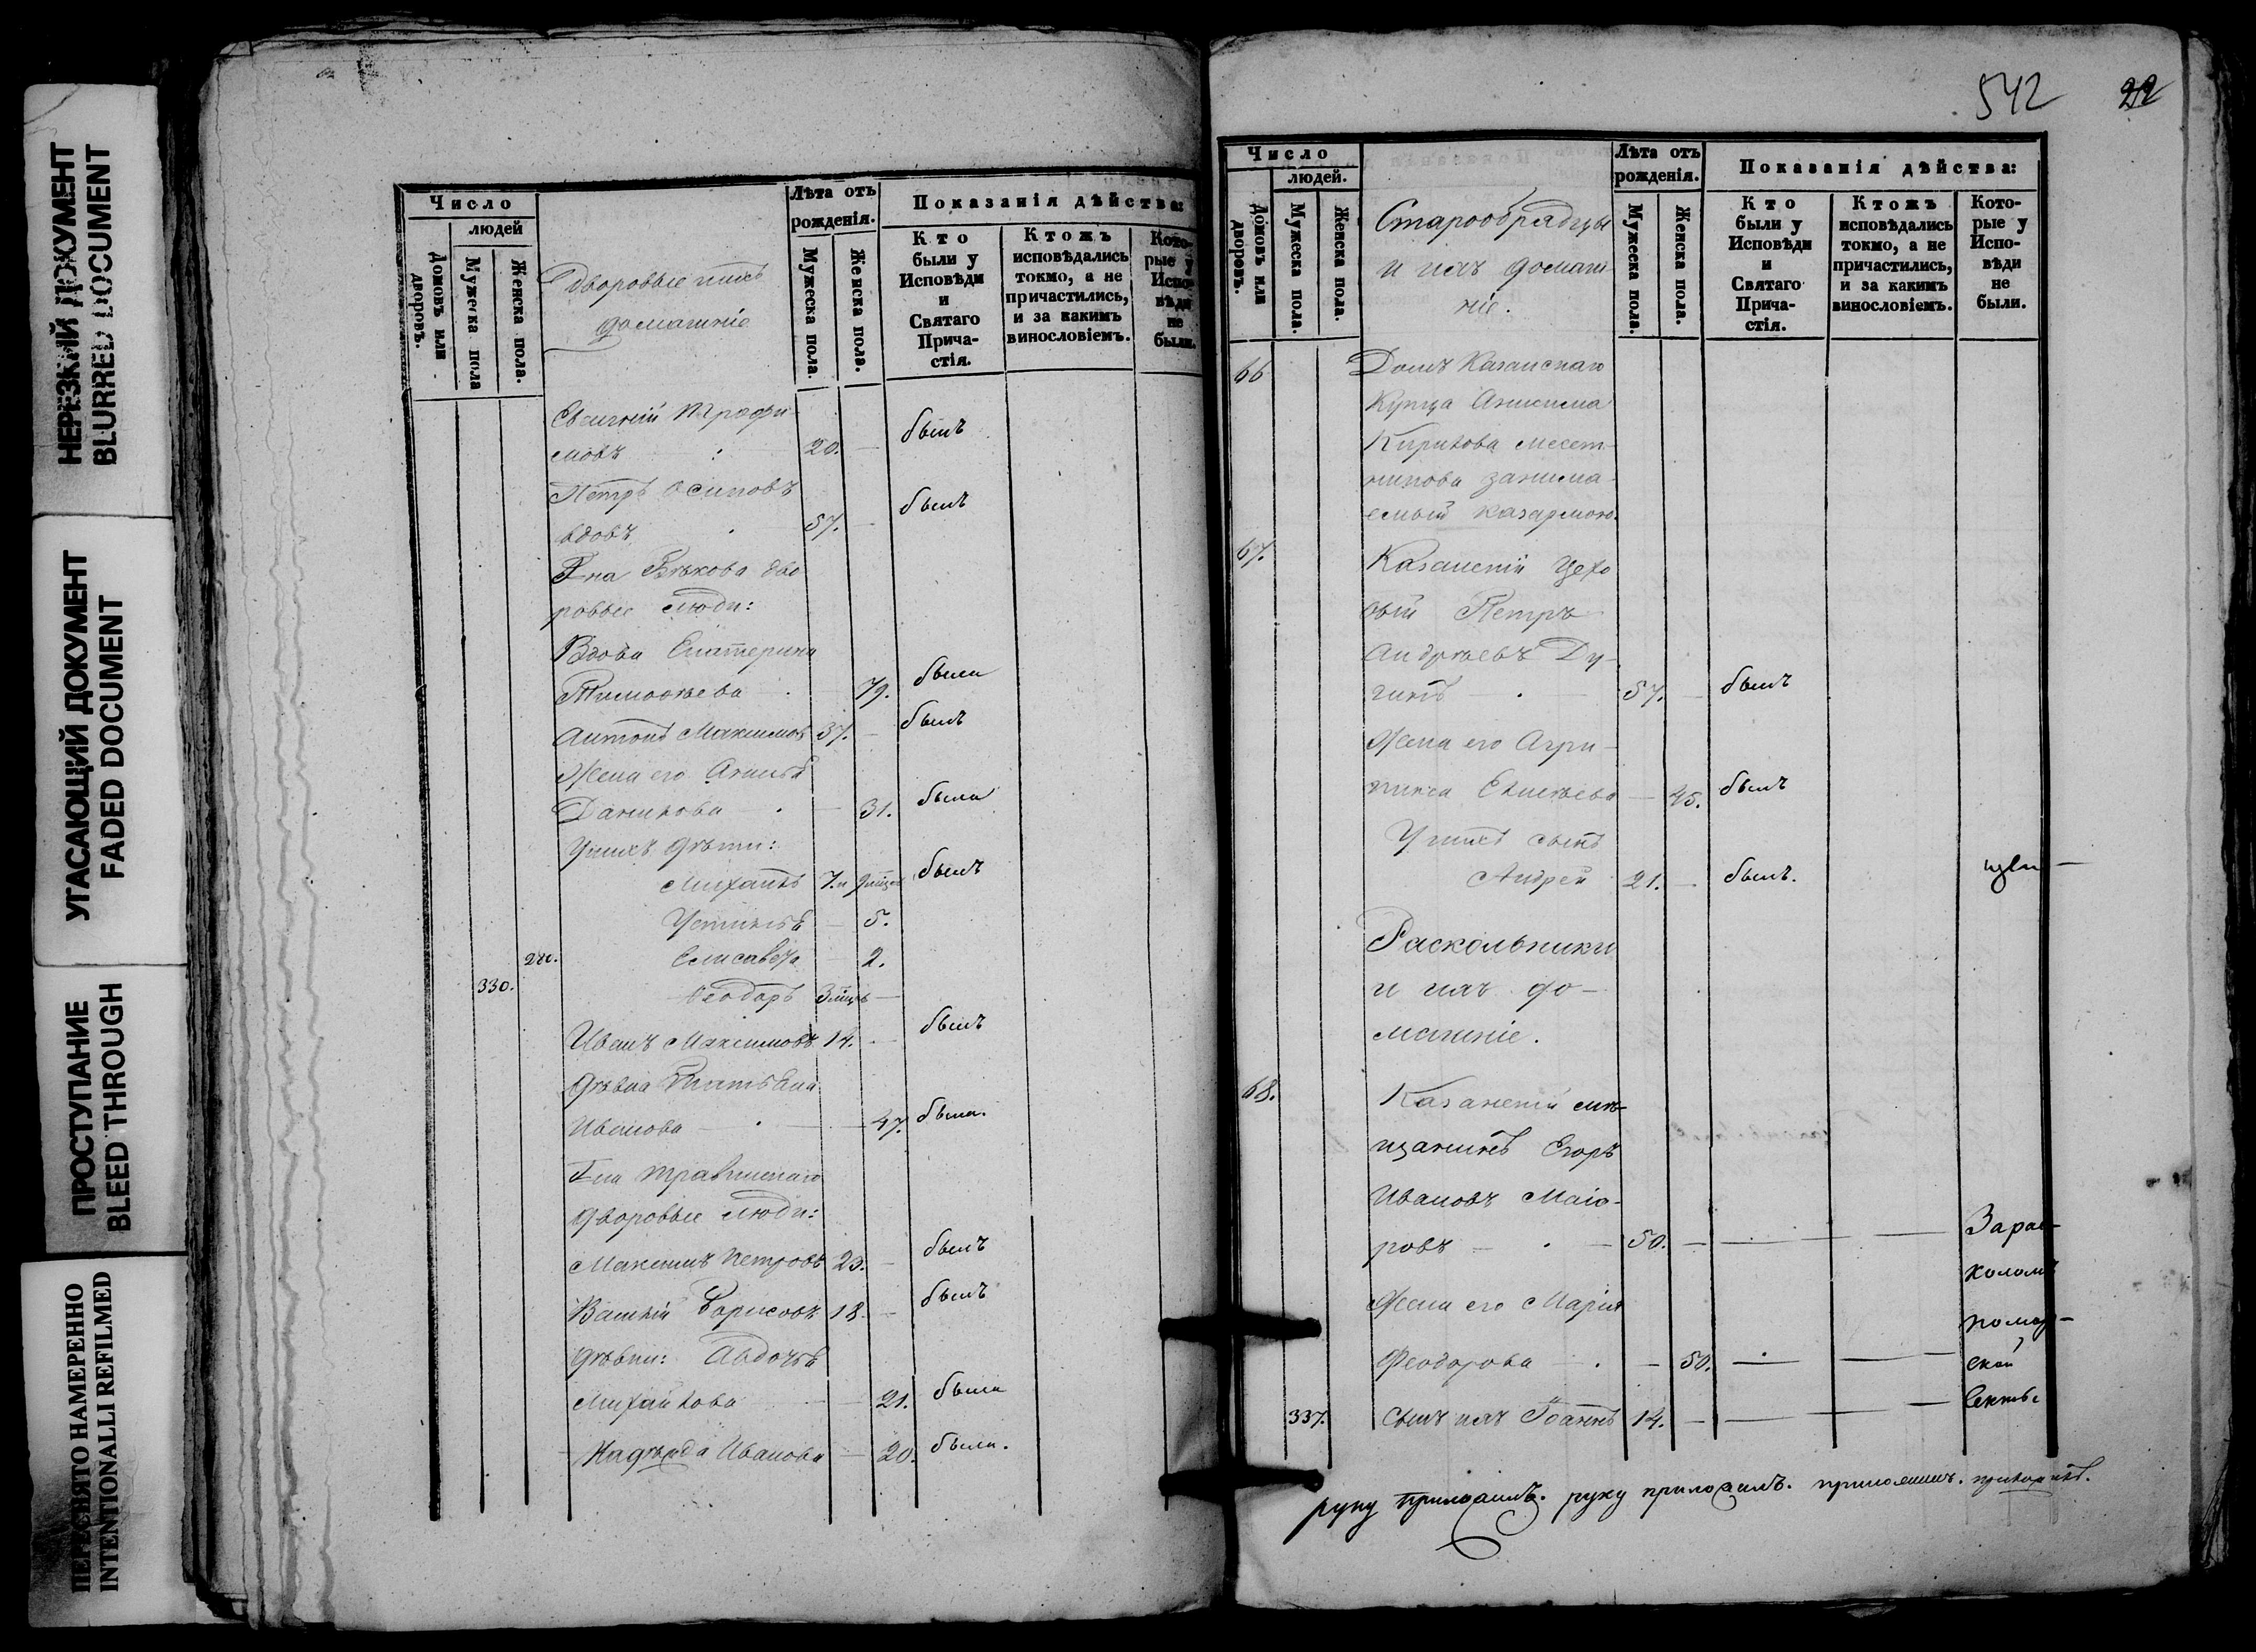 НЕРЕЗКИЙ ДОКУМЕНТ
BLURRED DOCUMENT
УГАСАЮЩИЙ ДОКУМЕНТ
FADED DOCUMENT
ПРОСТУПАНИЕ
BLEED THROUGH
ПЕРЕСНЯТО НАМЕРЕННО
INTENTIONALLI REFILMED
Число
людей
Домовъ или дворовъ.
Мужеска пола
Женска пола.
Дворовые ихъ
домашніе
Лѣта отъ
рожденія.
Мужеска пола.
Женска пола.
Показанія дѣйства:
Кто
были у
Исповѣди
и
Святаго
Прича-
стія.
Ктожъ
исповѣдались
токмо, а не
причастились,
и за какимъ
винословіемъ.
Кото-
рые у
Испо-
вѣди
не
были.
Евгеній Трофи-
мовъ 20. — былъ
Петръ Осиповъ
вдовъ 57. — былъ
Г-на дво
ровые люди:
Вдова Екатерина
Тимофѣева 79. была
Антонъ Максимовъ 37. — былъ
Жена его Анисья
Данилова — 31. была
У нихъ дѣти:
Михаилъ 7. и былъ
Устинья — 5.
Елисавета — 2.
330. Ѳеодоръ
Иванъ Максимовъ 14. — былъ
Дѣвка Татьяна
Иванова — 47. была.
Г-на
дворовые люди:
Максимъ Петровъ 23. — былъ
Василій Борисовъ 18. — былъ
Дѣвки: Авдотья
Михайлова — 21. была
Надежда Иванова — 20. была.
542 22
Число
людей.
Домовъ или дворовъ.
Мужеска пола.
Женска пола.
Старообрядцы
и ихъ домаш-
ніе.
Лѣта отъ
рожденія.
Мужеска пола.
Женска пола.
Показанія дѣйства:
Кто
были у
Исповѣди
и
Святаго
Прича-
стія.
Ктожъ
исповѣдались
токмо, а не
причастились,
и за какимъ
винословіемъ.
Кото-
рые у
Испо-
вѣди
не
были.
66 Домъ Казанскаго
Купца Анисима
Кирилова Месет-
никова занима-
емый казармою.
67. Казанскій Цехо
вый Петръ
Андреевъ Ду-
гинъ 57. — былъ
Жена его Агри-
пина Елисѣева — 45. былъ
У нихъ сынъ
Андрей 21. — былъ.
Раскольники
и ихъ до-
машніе.
68. Казанскій мѣ-
щанинъ Егоръ
Ивановъ Маіо-
ровъ — 50. — За рас-
коломъ
Жена его Марія помор-
Феодорова — 50. — ской
337. Сынъ ихъ Іоаннъ 14. — секты
руку приложилъ. руку приложилъ.